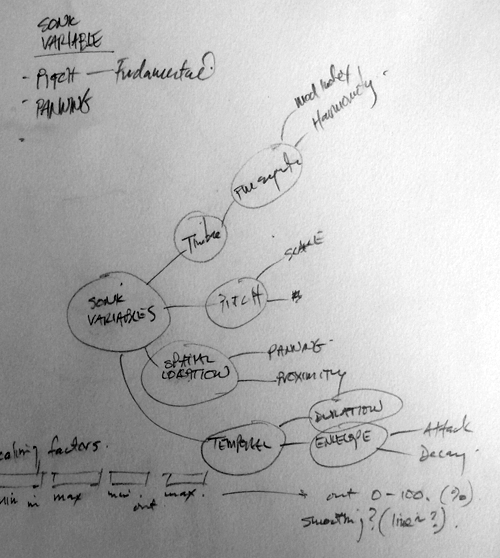 SONIC
VARIABLE
- PITCH — Fundamental?
- PANNING
mod index
Harmonicity
FM synth
Timbre
SCALE
SONIC
VARIABLES
PITCH
SPATIAL
LOCATION
PANNING
PROXIMITY
DURATION
TEMPORAL
ENVELOPE
Attack
Decay
caling factors.
min in max min out max.
out 0-100. (%)
smoothing? (linear?).